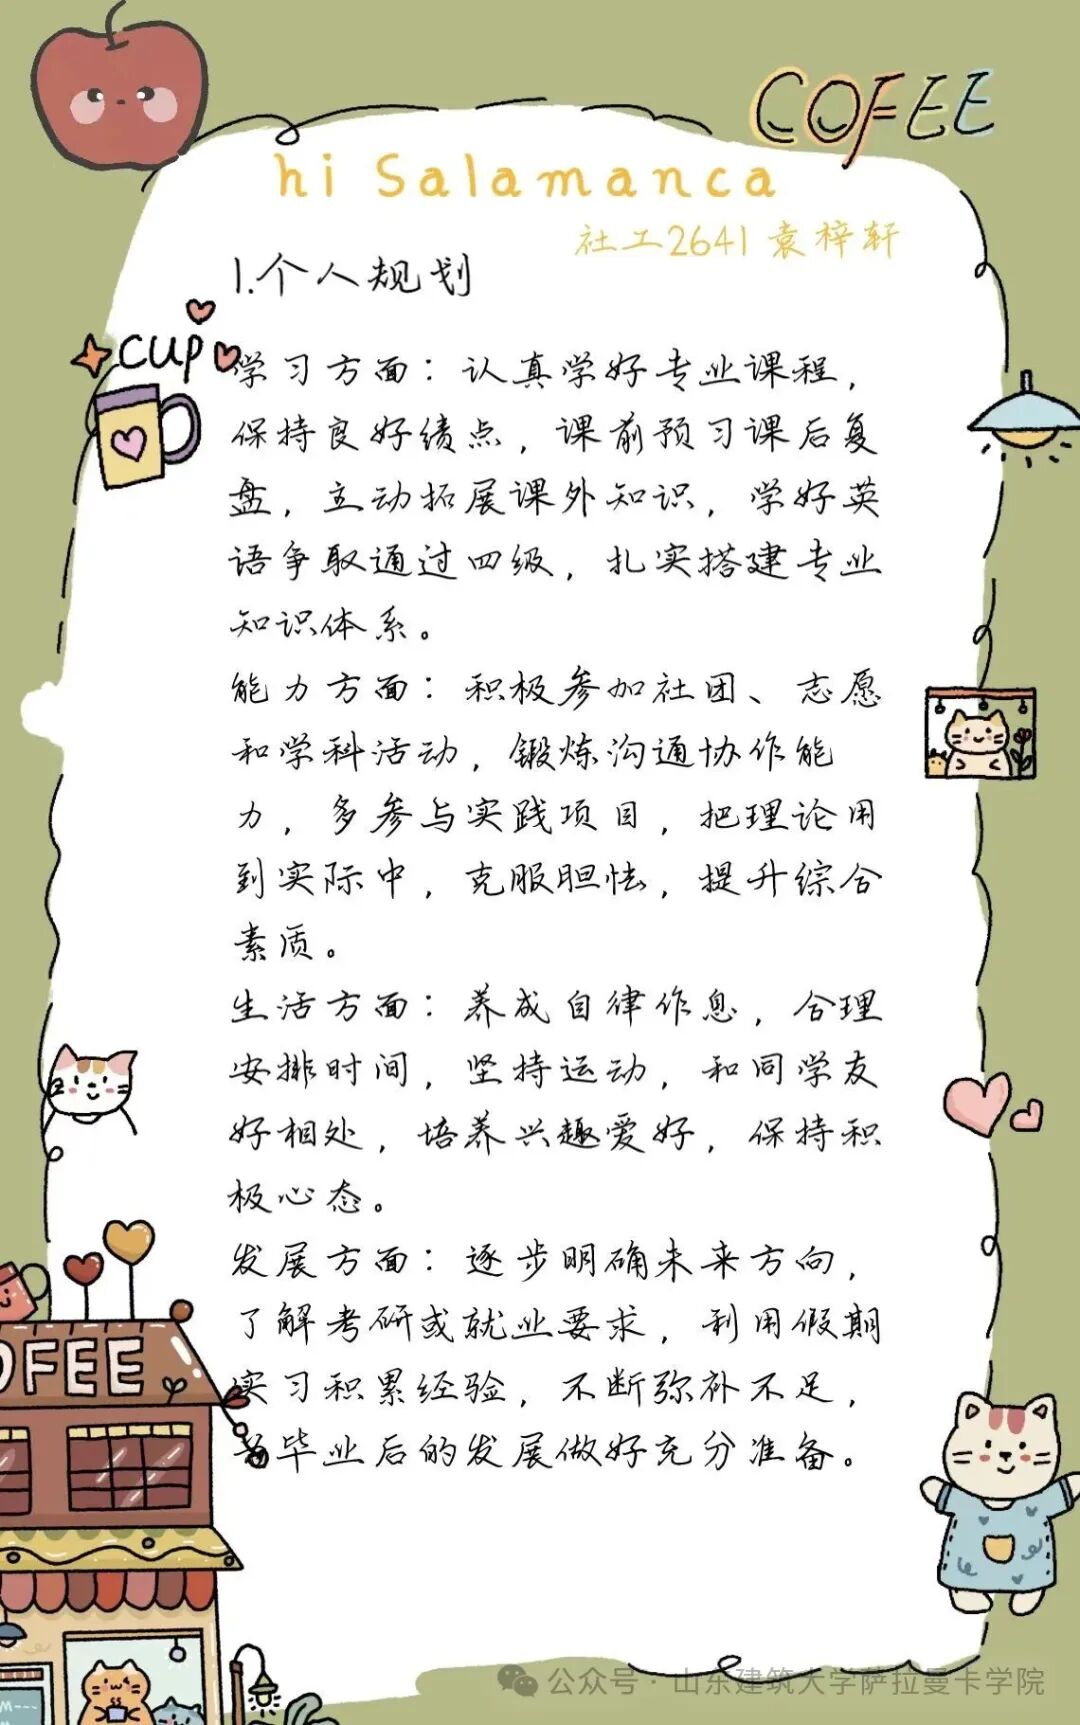 COFEE
hi Salamanca
社工2641 袁梓轩
1.个人规划
cup
学习方面：认真学好专业课程，
保持良好绩点，课前预习课后复
盘，主动拓展课外知识，学好英
语争取通过四级，扎实搭建专业
知识体系。
能力方面：积极参加社团、志愿
和学科活动，锻炼沟通协作能
力，多参与实践项目，把理论用
到实际中，克服胆怯，提升综合
素质。
生活方面：养成自律作息，合理
安排时间，坚持运动，和同学友
好相处，培养兴趣爱好，保持积
极心态。
发展方面：逐步明确未来方向，
了解考研或就业要求，利用假期
实习积累经验，不断弥补不足，
为毕业后的发展做好充分准备。
OFEE
公众号·山东建筑大学萨拉曼卡学院